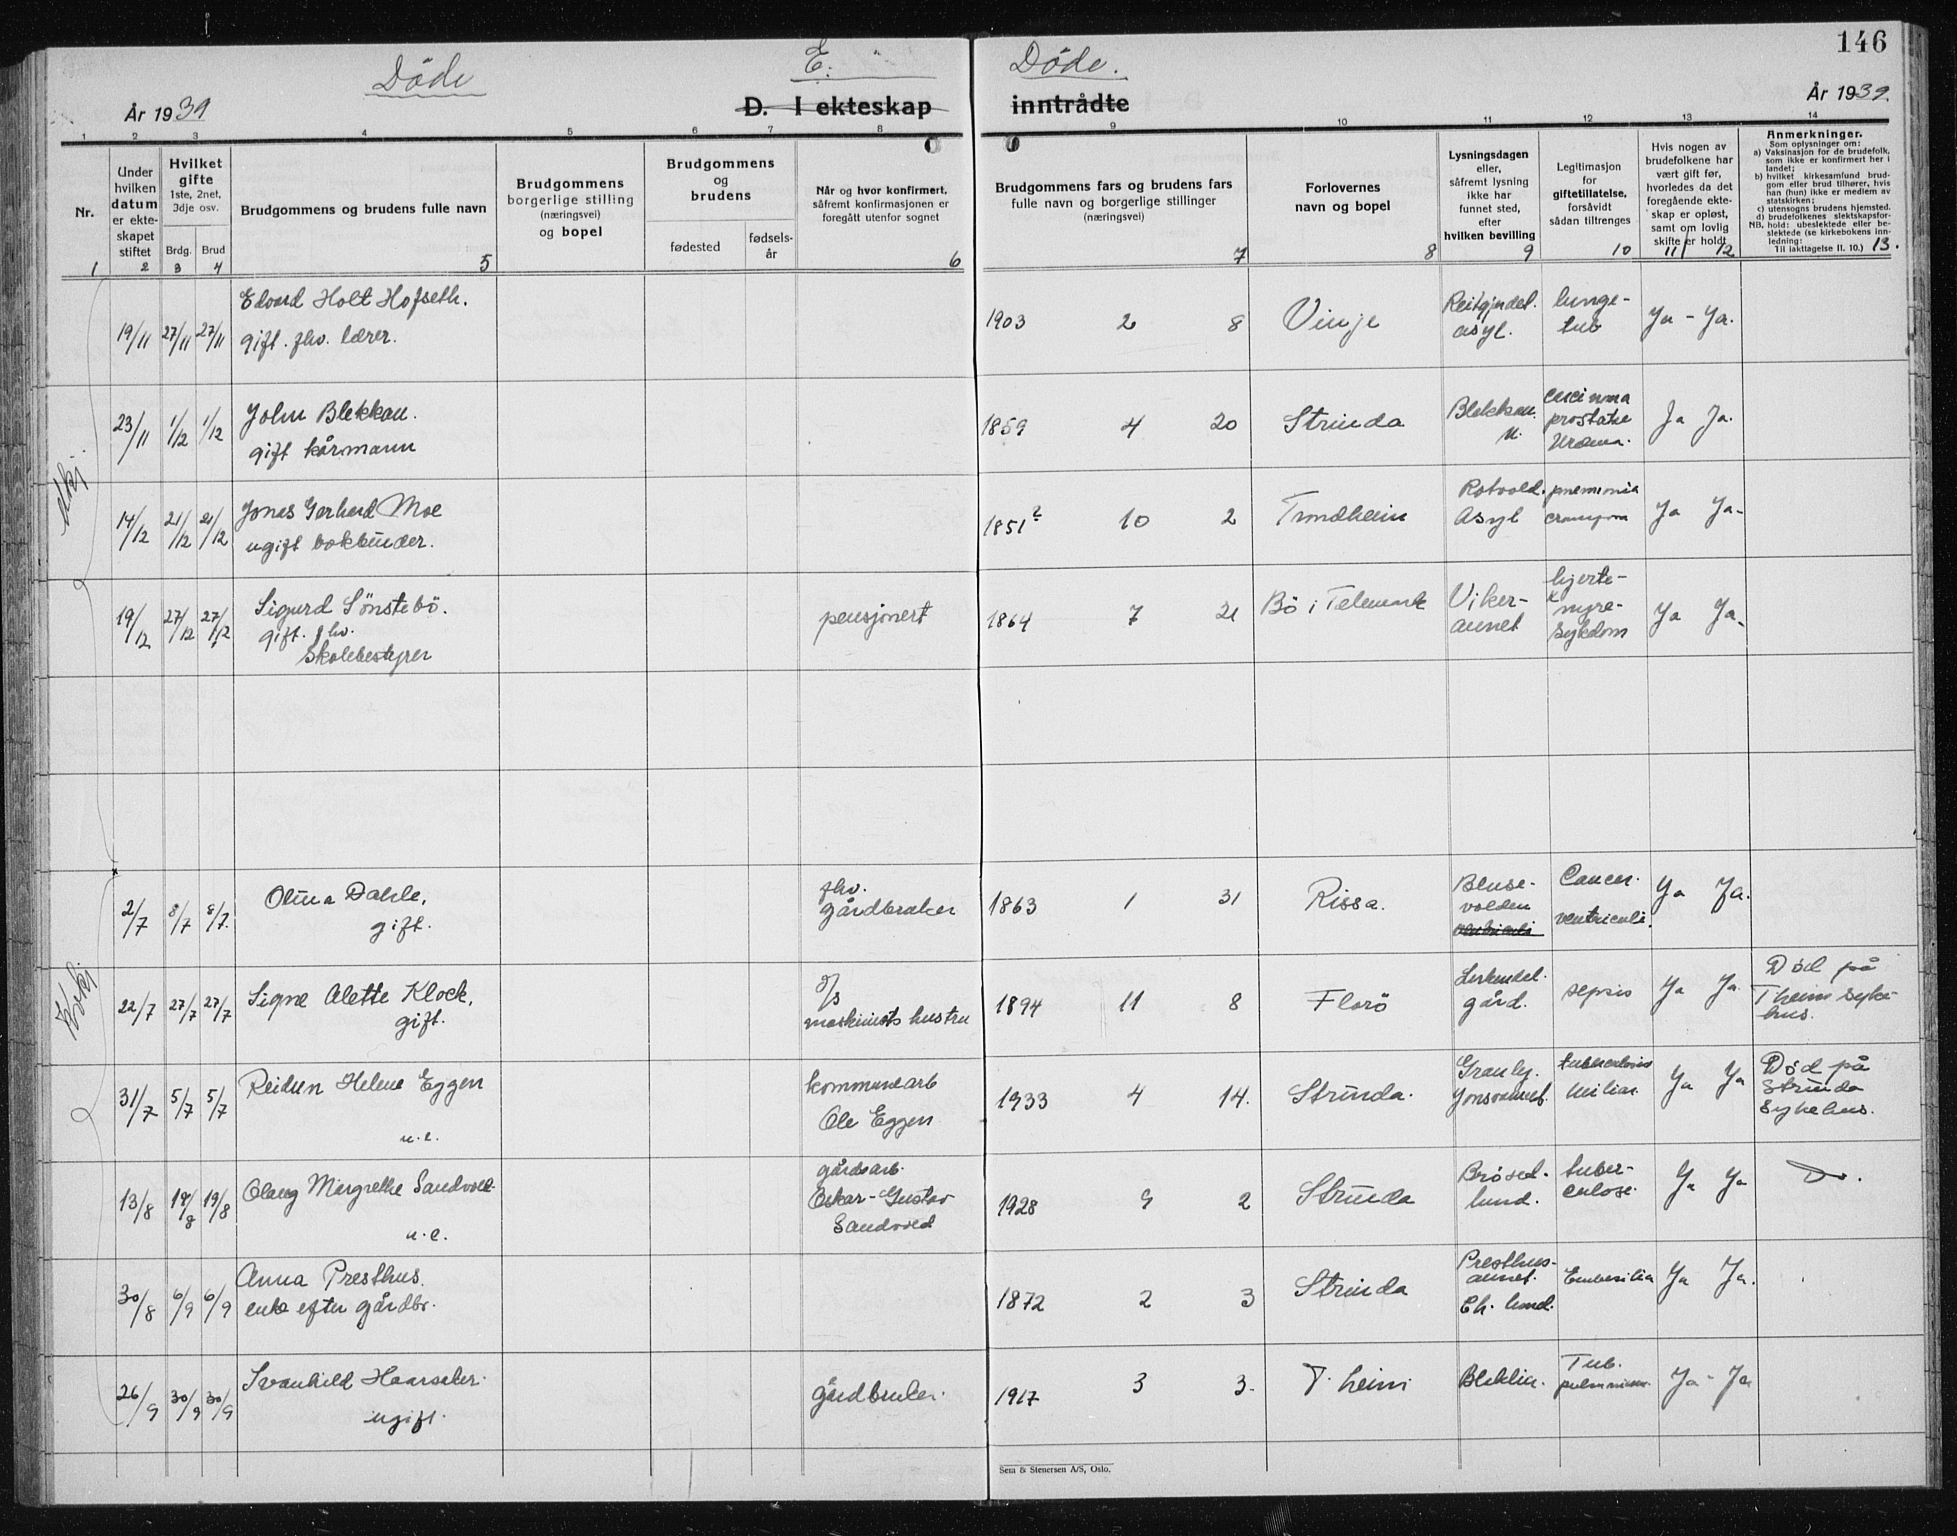 146
Døde
E.
Døde.
År 1939
D. I ekteskap
inntrådte
År 1939.
1 2 3 4 5 6 7 8 9 10 11 12 13 14
Nr.
Under hvilken datum er ekteskapet stiftet
Hvilket gifte
1ste, 2net, 3dje osv.
Brdg. Brud
Brudgommens og brudens fulle navn
Brudgommens borgerlige stilling (næringsvei) og bopel
Brudgommens og brudens
fødested
fødselsår
Når og hvor konfirmert, såfremt konfirmasjonen er foregått utenfor sognet
Brudgommens fars og brudens fars
fulle navn og borgerlige stillinger
(næringsvei)
Forlovernes navn og bopel
Lysningsdagen eller, såfremt lysning ikke har funnet sted, efter hvilken bevilling
Legitimasjon for giftetillatelse, forsåvidt sådan tiltrenges
Hvis nogen av brudefolkene har vært gift før, hvorledes da det foregående ekteskap er opløst, samt om lovlig skifte er holdt
Anmerkninger.
Som oplysninger om:
a) Vaksinasjon for de brudefolk, som ikke er konfirmert her i landet;
b) hvilket kirkesamfund brudgom eller brud tilhører, hvis han (hun) ikke er medlem av statskirken;
c) utensogns brudens hjemsted.
d) brudefolkenes slektskapsforhold: ubeslektede eller beslektede (se kirkebokens innledning:
NB.
Til iakttagelse II. 10.)
1 2 3 4 5 6 7 8 9 10 11 12 13.
19/11 27/11 27/11 Edvard Holt Hofseth.
gift. fhv. lærer.
1903 2 8 Vinje Reitgjerdet asyl. lungetub Ja - Ja.
23/11 1/12 1/12 John Blekkan.
gift kårmann
1859 4 20 Strinda Blekkan prostatae Uræmi. Ja Ja.
14/12 21/12 21/12 Jonas Gerhard Moe
ugift bokbinder.
1851? 10 2 Trondheim Rotvold. Asyl pneumonia Ja Ja-
19/12 27/12 27/12 Sigurd Sönstebö.
gift. fhv.
Skolebestyrer
pensjonert 1864 7 21 Bö i Telemark Vikeraunet hjerte- nyresykdom Ja Ja-
2/7 8/7 8/7. Olina Dahle,
gift.
fhv. gårdbruker 1863 1 31 Rissa. Blusevolden Cancer ventriculi. Ja Ja.
Kvkj
22/7 27/7 27/7 Signe Alette Klock,
gift.
d/s maskinists hustru 1894 11 8 Florö Lerkendal gård. sepsis Ja Ja Död på T heim sykehus.
31/7 5/7 5/7 Reidun Helene Eggen
u.e.
kommunearb Ole Eggen 1933 4 14. Strinda. Granly. Jonsvannet. tuberculosis miliar. Ja Ja Död på Strinda Sykehus.
13/8 19/8 19/8 Olaug Margrethe Sandved
u.e.
gårdsarb. Oskar-Gustav Sandved 1928 9 2 Strinda Brösedlund. tuberculose. Ja Ja Do.
30/8 6/9 6/9 Anna Presthus.
enke efter gårdbr.
1872 2 3 Strinda Presthusaunet. Ch. lund. Ja Ja.
26/9 30/9 30/9 Svanhild Haarsaker.
ugift.
gårdbruker. 1917 3 3. T. heim Bleklia. Tub. pulmonum. Ja - Ja
Sem & Stenersen A/S, Oslo.